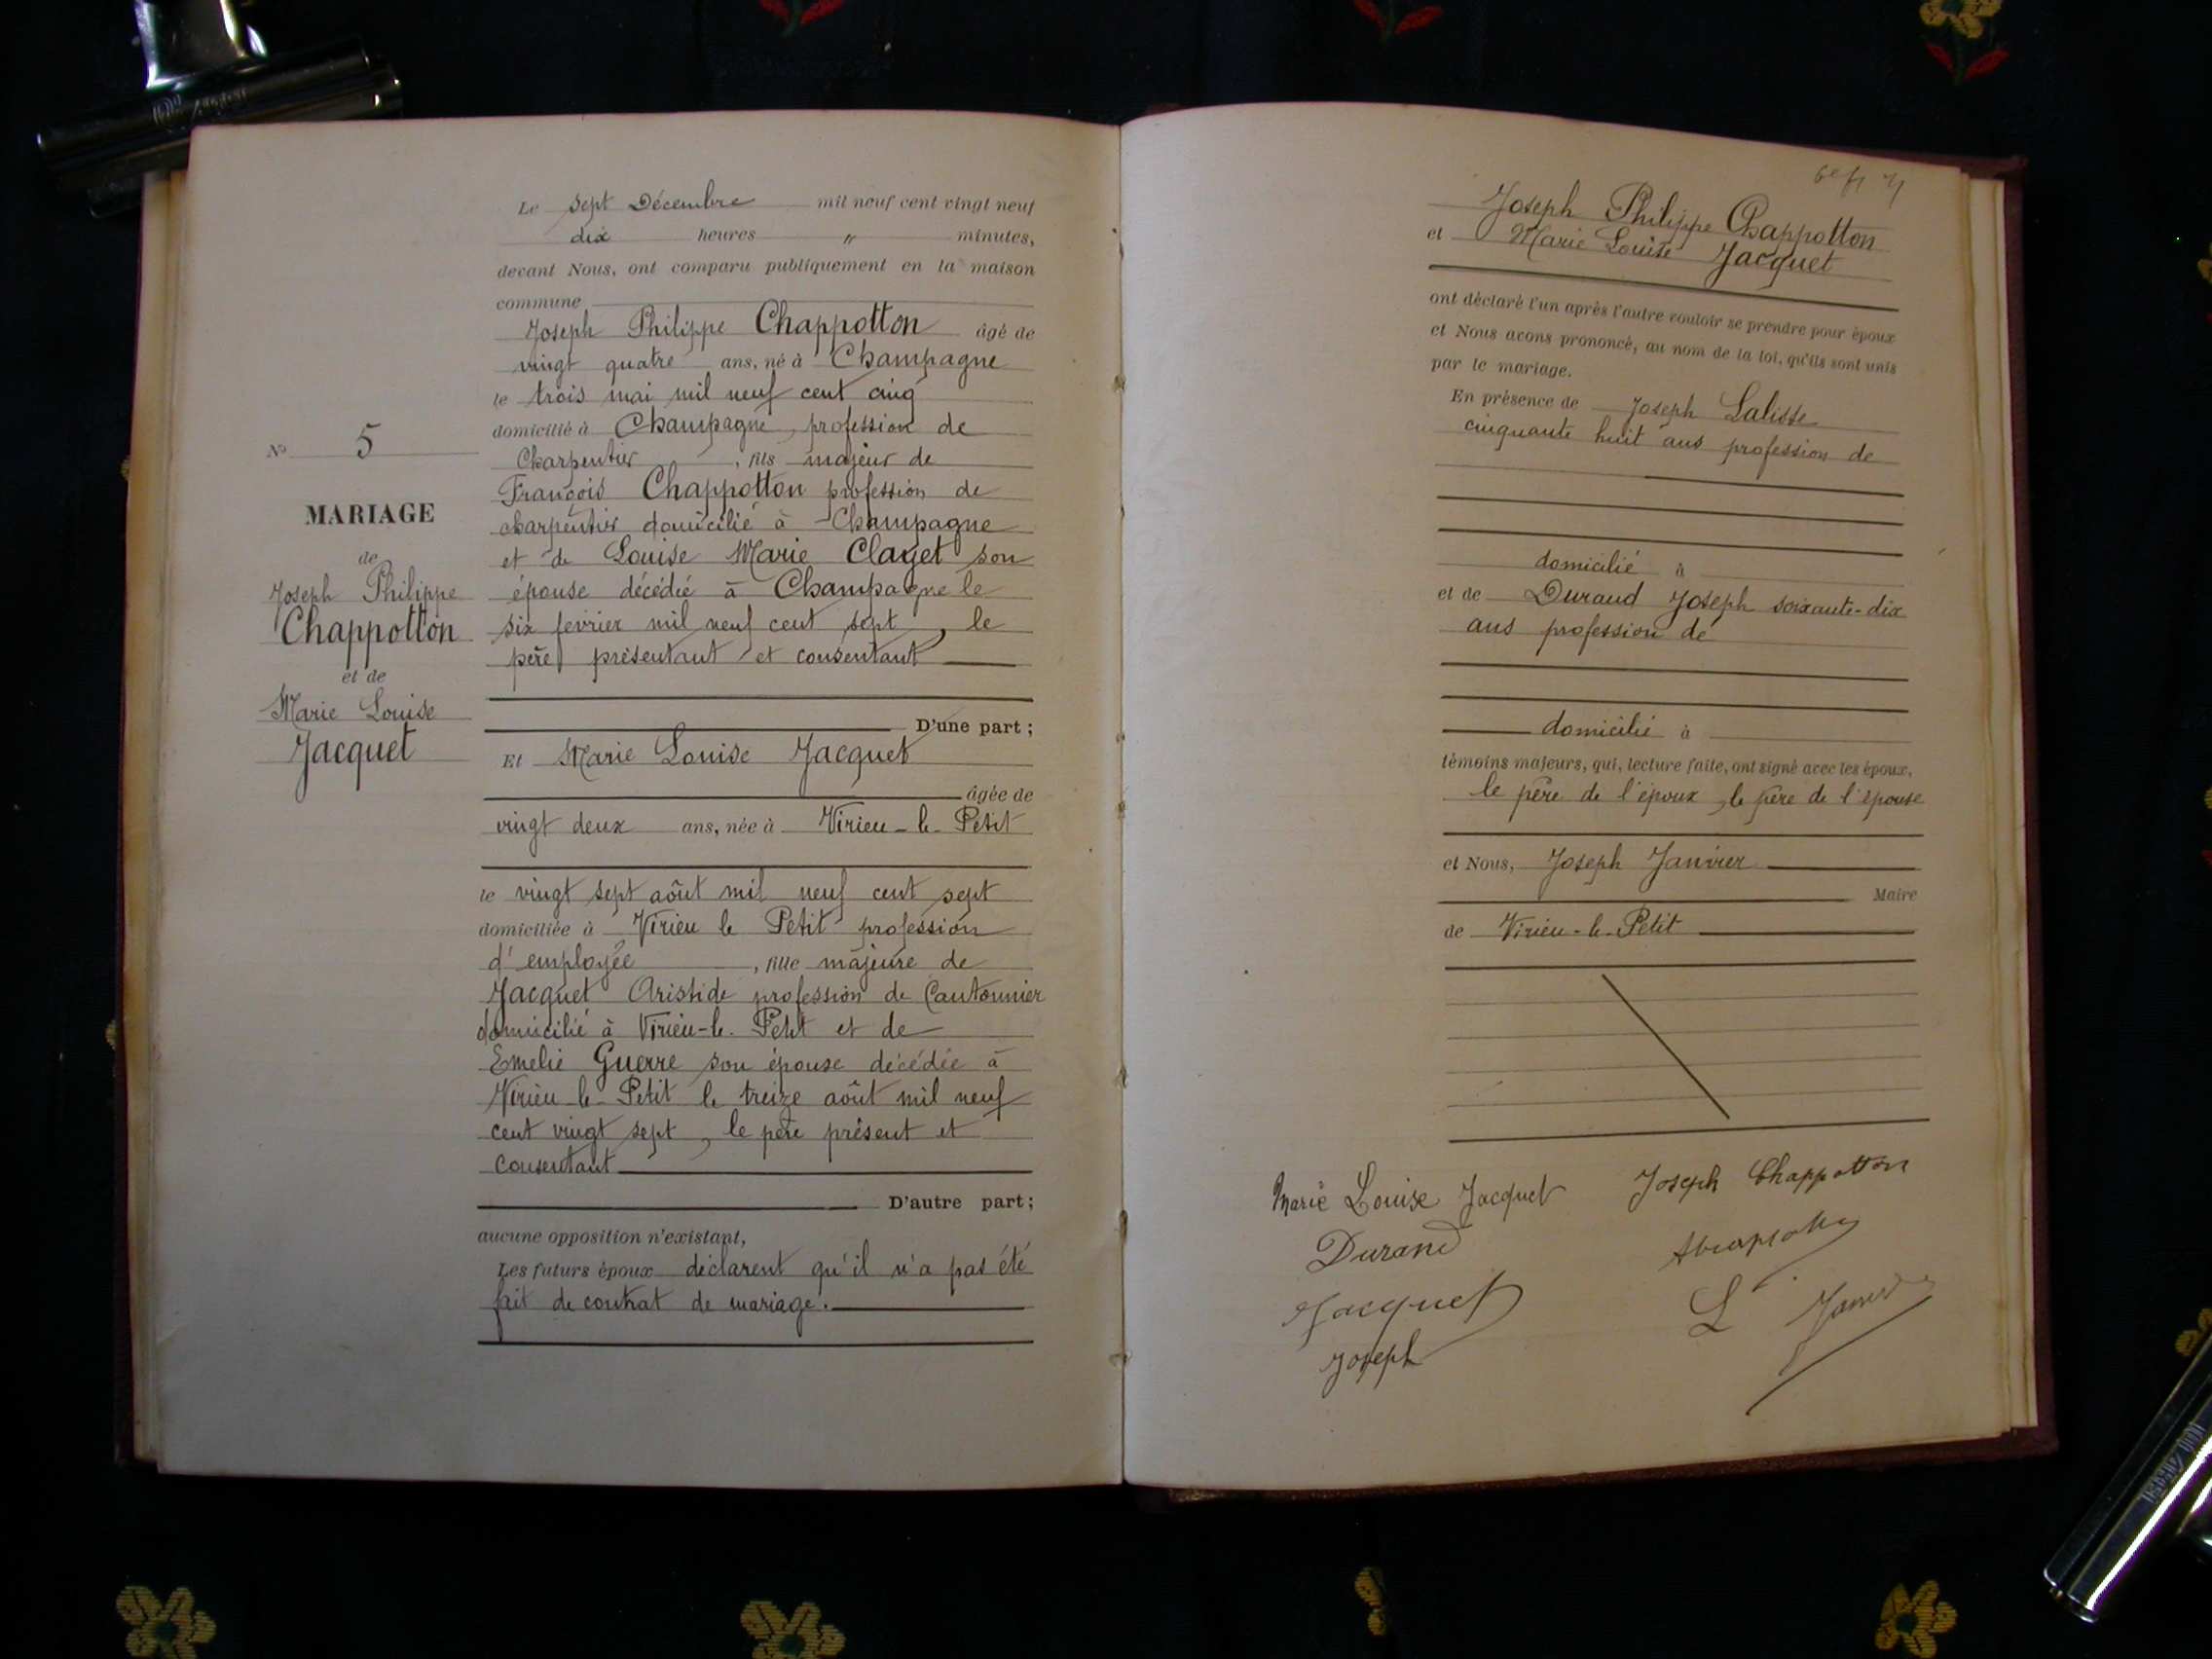 N° 5
MARIAGE
de
Joseph Philippe
Chappotton
et de
Marie Louise
Jacquet
Le sept Décembre mil neuf cent vingt neuf
dix heures " minutes,
devant Nous, ont comparu publiquement en la maison
commune
Joseph Philippe Chappotton âgé de
vingt quatre ans, né à Champagne
le trois mai mil neuf cent cinq
domicilié à Champagne, profession de
Charpentier, fils majeur de
François Chappotton profession de
charpentier domicilié à Champagne
et de Louise Marie Clayet son
épouse décédée à Champagne le
six fevrier mil neuf cent sept, le
père présentant et consentant
D'une part;
Et Marie Louise Jacquet
âgée de
vingt deux ans, née à Virieu-le-Petit
le vingt sept août mil neuf cent sept
domiciliée à Virieu le Petit profession
d'employée, fille majeure de
Jacquet Aristide profession de Cantonnier
domicilié à Virieu-le-Petit et de
Emelie Guerre son épouse décédée à
Virieu-le-Petit le treize août mil neuf
cent vingt sept, le père présent et
consentant
D'autre part;
aucune opposition n'existant,
Les futurs époux déclarent qu'il n'a pas été
fait de contrat de mariage.
Joseph Philippe Chappotton
et Marie Louise Jacquet
ont déclaré l'un après l'autre vouloir se prendre pour époux
et Nous avons prononcé, au nom de la loi, qu'ils sont unis
par le mariage.
En présence de Joseph Lalisse
cinquante huit ans profession de
domicilié à
et de Durand Joseph soixante-dix
ans profession de
domicilié à
témoins majeurs, qui, lecture faite, ont signé avec les époux,
le père de l'époux, le père de l'épouse
et Nous, Joseph Janvier
Maire
de Virieu-le-Petit
Marie Louise Jacquet Joseph Chappotton
Durand
Jacquet
Joseph